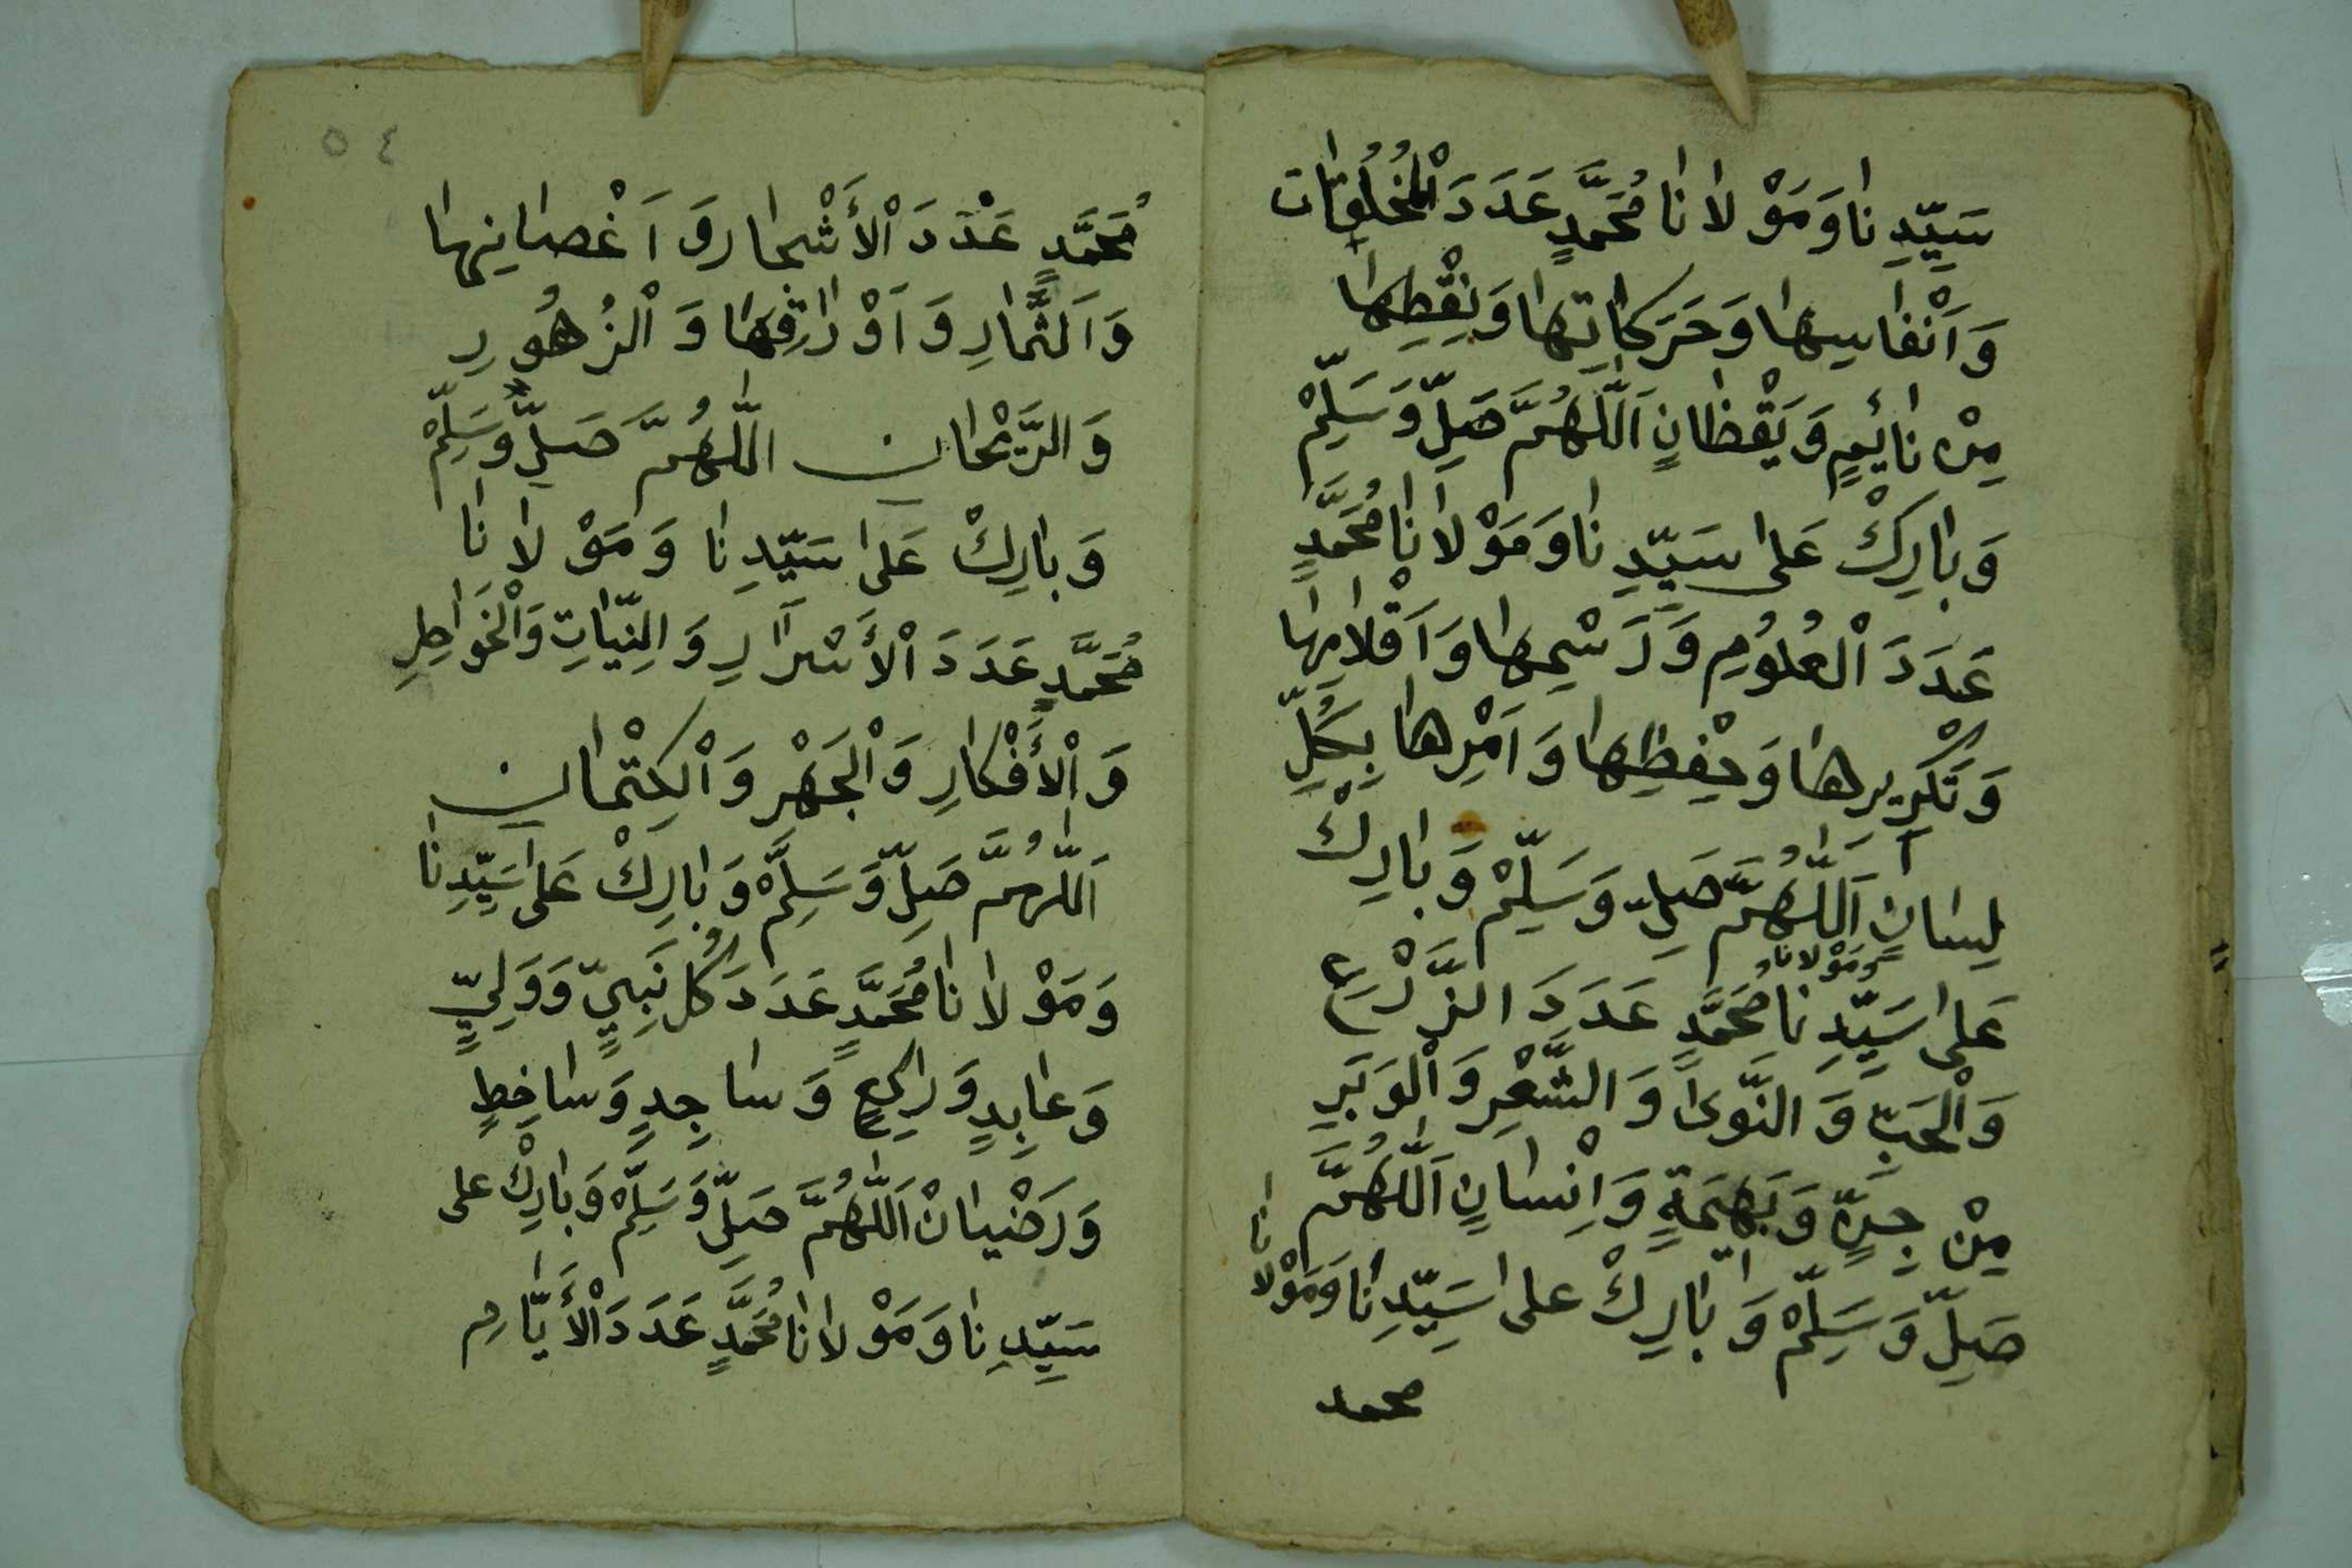 سَيِّدِنا وَمَوْلانا مُحَمَّدٍ عَدَدَ الْمَخْلُوقات
وَاَنْفاسِها وَحَرَكاتِها وَيَقِظِها
مِنْ نائِمٍ وَيَقْظانٍ اَللّٰهُمَّ صَلِّ وَسَلِّمْ
وَبارِكْ عَلى سَيِّدِنا وَمَوْلانا مُحَمَّدٍ
عَدَدَ الْعُلُومِ وَرَسْمِها وَاَقْلامِها
وَتَكْرِيرِها وَحِفْظِها وَاَمْرِها بِكُلِّ
لِسانٍ اَللّٰهُمَّ صَلِّ وَسَلِّمْ وَبارِكْ
عَلى سَيِّدِنا وَمَوْلانا مُحَمَّدٍ عَدَدَ الزَّرْعِ
وَالْحَبِّ وَالنَّوى وَالشَّعْرِ وَالْوَبَرِ
مِنْ جِنٍّ وَبَهِيمَةٍ وَاِنْسانٍ اَللّٰهُمَّ
صَلِّ وَسَلِّمْ وَبارِكْ على سَيِّدِنا وَمَوْلانا
محمد
٥٤
مُحَمَّدٍ عَدَدَ الْأَشْجارِ وَاَغْصانِها
وَالثِّمارِ وَاَوْراقِها وَالْزُهُورِ
وَالرَّيْحان اللّٰهُمَّ صَلِّ وَسَلِّمْ
وَبارِكْ عَلى سَيِّدِنا وَمَوْلانا
مُحَمَّدٍ عَدَدَ الْأَسْرارِ وَالنِّيّاتِ وَالْخَواطِرِ
وَالْأَفْكارِ وَالْجَهْرِ وَالْكِتْمان
اَللّٰهُمَّ صَلِّ وَسَلِّمْ وَبارِكْ عَلى سَيِّدِنا
وَمَوْلانا مُحَمَّدٍ عَدَدَ كُلِّ نَبِيٍّ وَوَلِيٍّ
وَعابِدٍ وَراكِعٍ وَساجِدٍ وَساخِطٍ
وَرَضْيانْ اَللّٰهُمَّ صَلِّ وَسَلِّمْ وَبارِكْ على
سَيِّدِنا وَمَوْلانا مُحَمَّدٍ عَدَدَ الْأَيّامِ